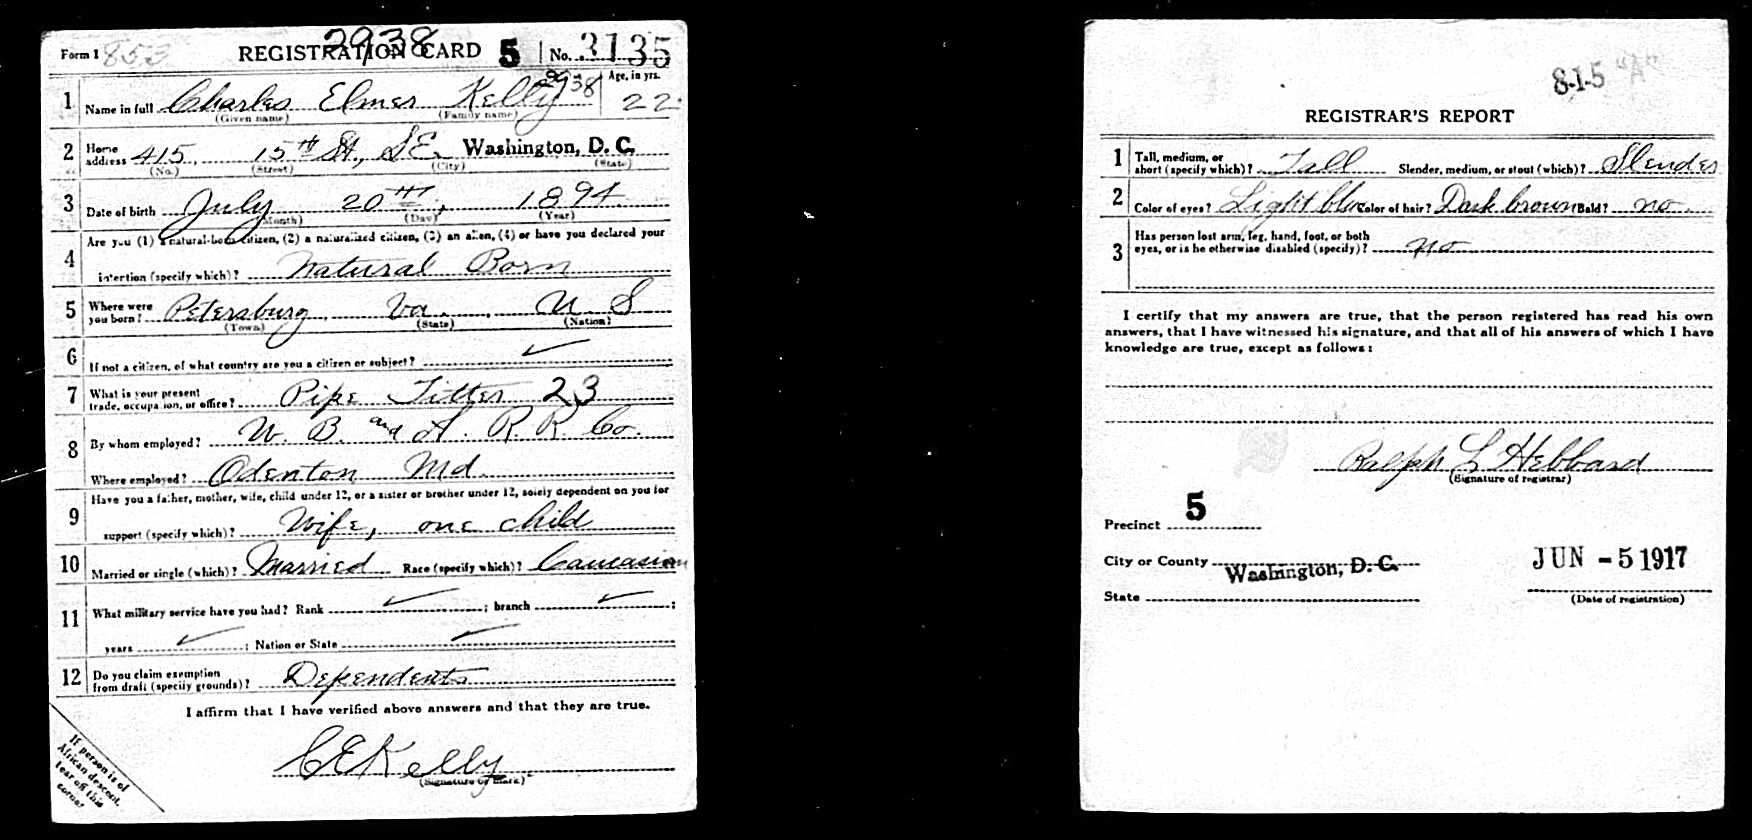 Form 1 853 REGISTRATION CARD 5 No. 3135
2938
1 Name in full Charles Elmer Kelly 2938 Age, in yrs. 22
(Given name) (Family name)
2 Home address 415 15th St., SE. Washington, D. C.
(No.) (Street) (City) (State)
3 Date of birth July 20TH, 1894
(Month) (Day) (Year)
4 Are you (1) a natural-born citizen, (2) a naturalized citizen, (3) an alien, (4) or have you declared your
intention (specify which)? Natural Born
5 Where were you born? Petersburg, Va. U S
(Town) (State) (Nation)
6 If not a citizen, of what country are you a citizen or subject? ✓
7 What is your present trade, occupation, or office? Pipe Fitter 23
8 By whom employed? W. B. and A. R R. Co.
Where employed? Odenton Md.
9 Have you a father, mother, wife, child under 12, or a sister or brother under 12, solely dependent on you for
support (specify which)? Wife, one child
10 Married or single (which)? Married Race (specify which)? Caucasian
11 What military service have you had? Rank ✓ ; branch ✓ ;
years ✓ ; Nation or State ✓
12 Do you claim exemption from draft (specify grounds)? Dependents
I affirm that I have verified above answers and that they are true.
C E Kelly
(Signature or mark)
If person is of
African descent,
tear off this
corner
8-1-5 "A"
REGISTRAR'S REPORT
1 Tall, medium, or short (specify which)? Tall Slender, medium, or stout (which)? Slender
2 Color of eyes? Light blue Color of hair? Dark brown Bald? no
3 Has person lost arm, leg, hand, foot, or both
eyes, or is he otherwise disabled (specify)? no
I certify that my answers are true, that the person registered has read his own
answers, that I have witnessed his signature, and that all of his answers of which I have
knowledge are true, except as follows:
Ralph L Hebbard
(Signature of registrar)
Precinct 5
City or County Washington, D. C. JUN -5 1917
State (Date of registration)